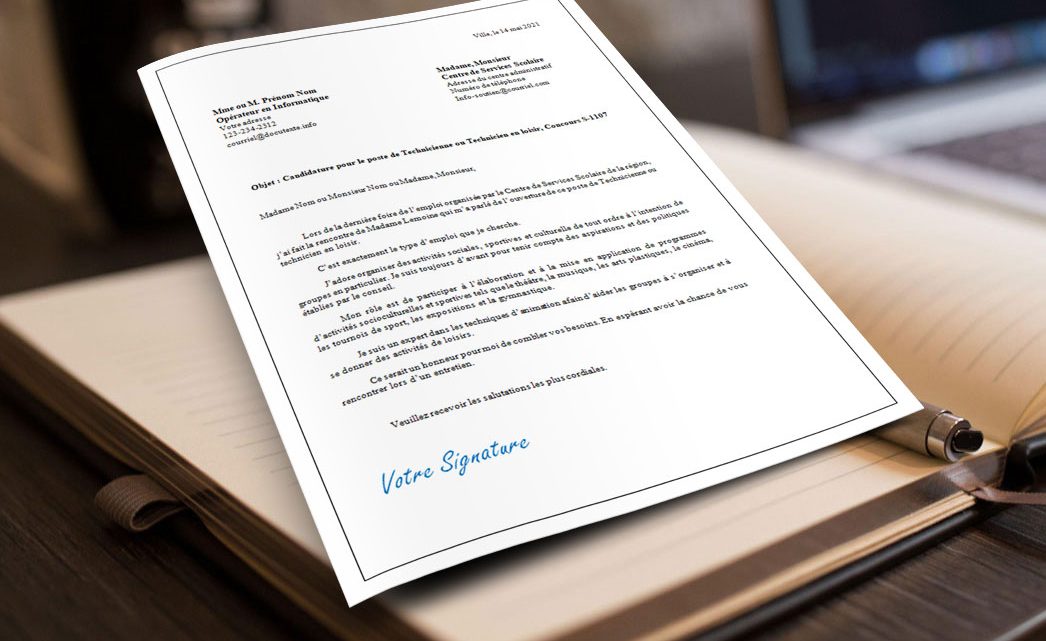 Ville, le 14 mai 2021
Madame, Monsieur
Centre de Services Scolaire
Adresse du centre administratif
Numéro de téléphone
Info-soutien@courriel.com
Mme ou M. Prénom Nom
Opérateur en Informatique
Votre adresse
123-234-2312
courriel@docutexte.info
Objet : Candidature pour le poste de Technicienne ou Technicien en loisir, Concours S-1107
Madame Nom ou Monsieur Nom ou Madame, Monsieur,
Lors de la dernière foire de l'emploi organisée par le Centre de Services Scolaire de la région,
j'ai fait la rencontre de Madame Lemoine qui m'a parlé de l'ouverture de ce poste de Technicienne ou
technicien en loisir.
C'est exactement le type d'emploi que je cherche.
J'adore organiser des activités sociales, sportives et culturelle de tout ordre à l'intention de
groupes en particulier. Je suis toujours d'avant pour tenir compte des aspirations et des politiques
établies par le conseil.
Mon rôle est de participer à l'élaboration et à la mise en application de programmes
d'activités socioculturelles et sportives tels que le théâtre, la musique, les arts plastiques, le cinéma,
les tournois de sport, les enpositions et la gymnastique.
Je suis un expert dans les techniques d'animation afain d'aider les groupes à s'organiser et à
se donner des activités de loisirs.
Ce serait un honneur pour moi de combler vos besoins. En espérant avoir la chance de vous
rencontrer lors d'un entretien.
Veuillez recevoir les salutations les plus cordiales.
Votre Signature